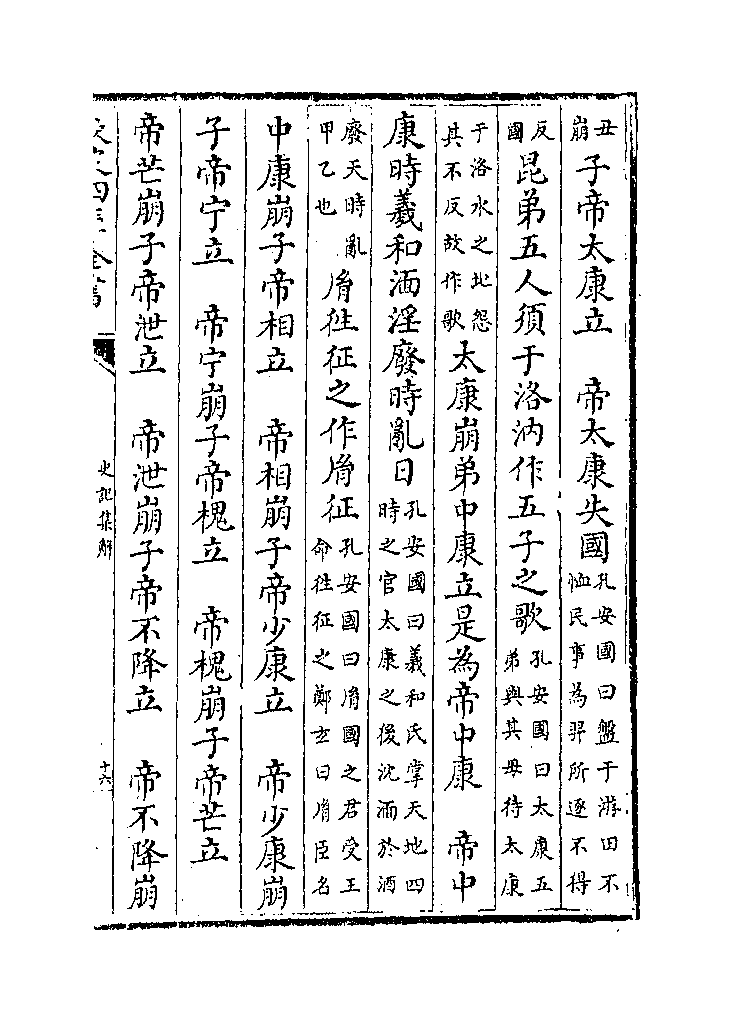 丑崩子帝太康立　帝太康失國孔安國曰盤于游田不恤民事為羿所逐不得
反國昆弟五人須于洛汭作五子之歌孔安國曰太康五弟與其母待太康
于洛水之北怨其不反故作歌太康崩弟中康立是為帝中康　帝中
康時羲和湎淫廢時亂日孔安國曰羲和氏掌天地四時之官太康之後沈湎於酒
廢天時亂甲乙也胤徃征之作胤征孔安國曰胤國之君受王命徃征之鄭玄曰胤臣名
中康崩子帝相立　帝相崩子帝少康立　帝少康崩
子帝宁立　帝宁崩子帝槐立　帝槐崩子帝芒立
帝芒崩子帝泄立　帝泄崩子帝不降立　帝不降崩
欽定四庫全書
史記集解
十六